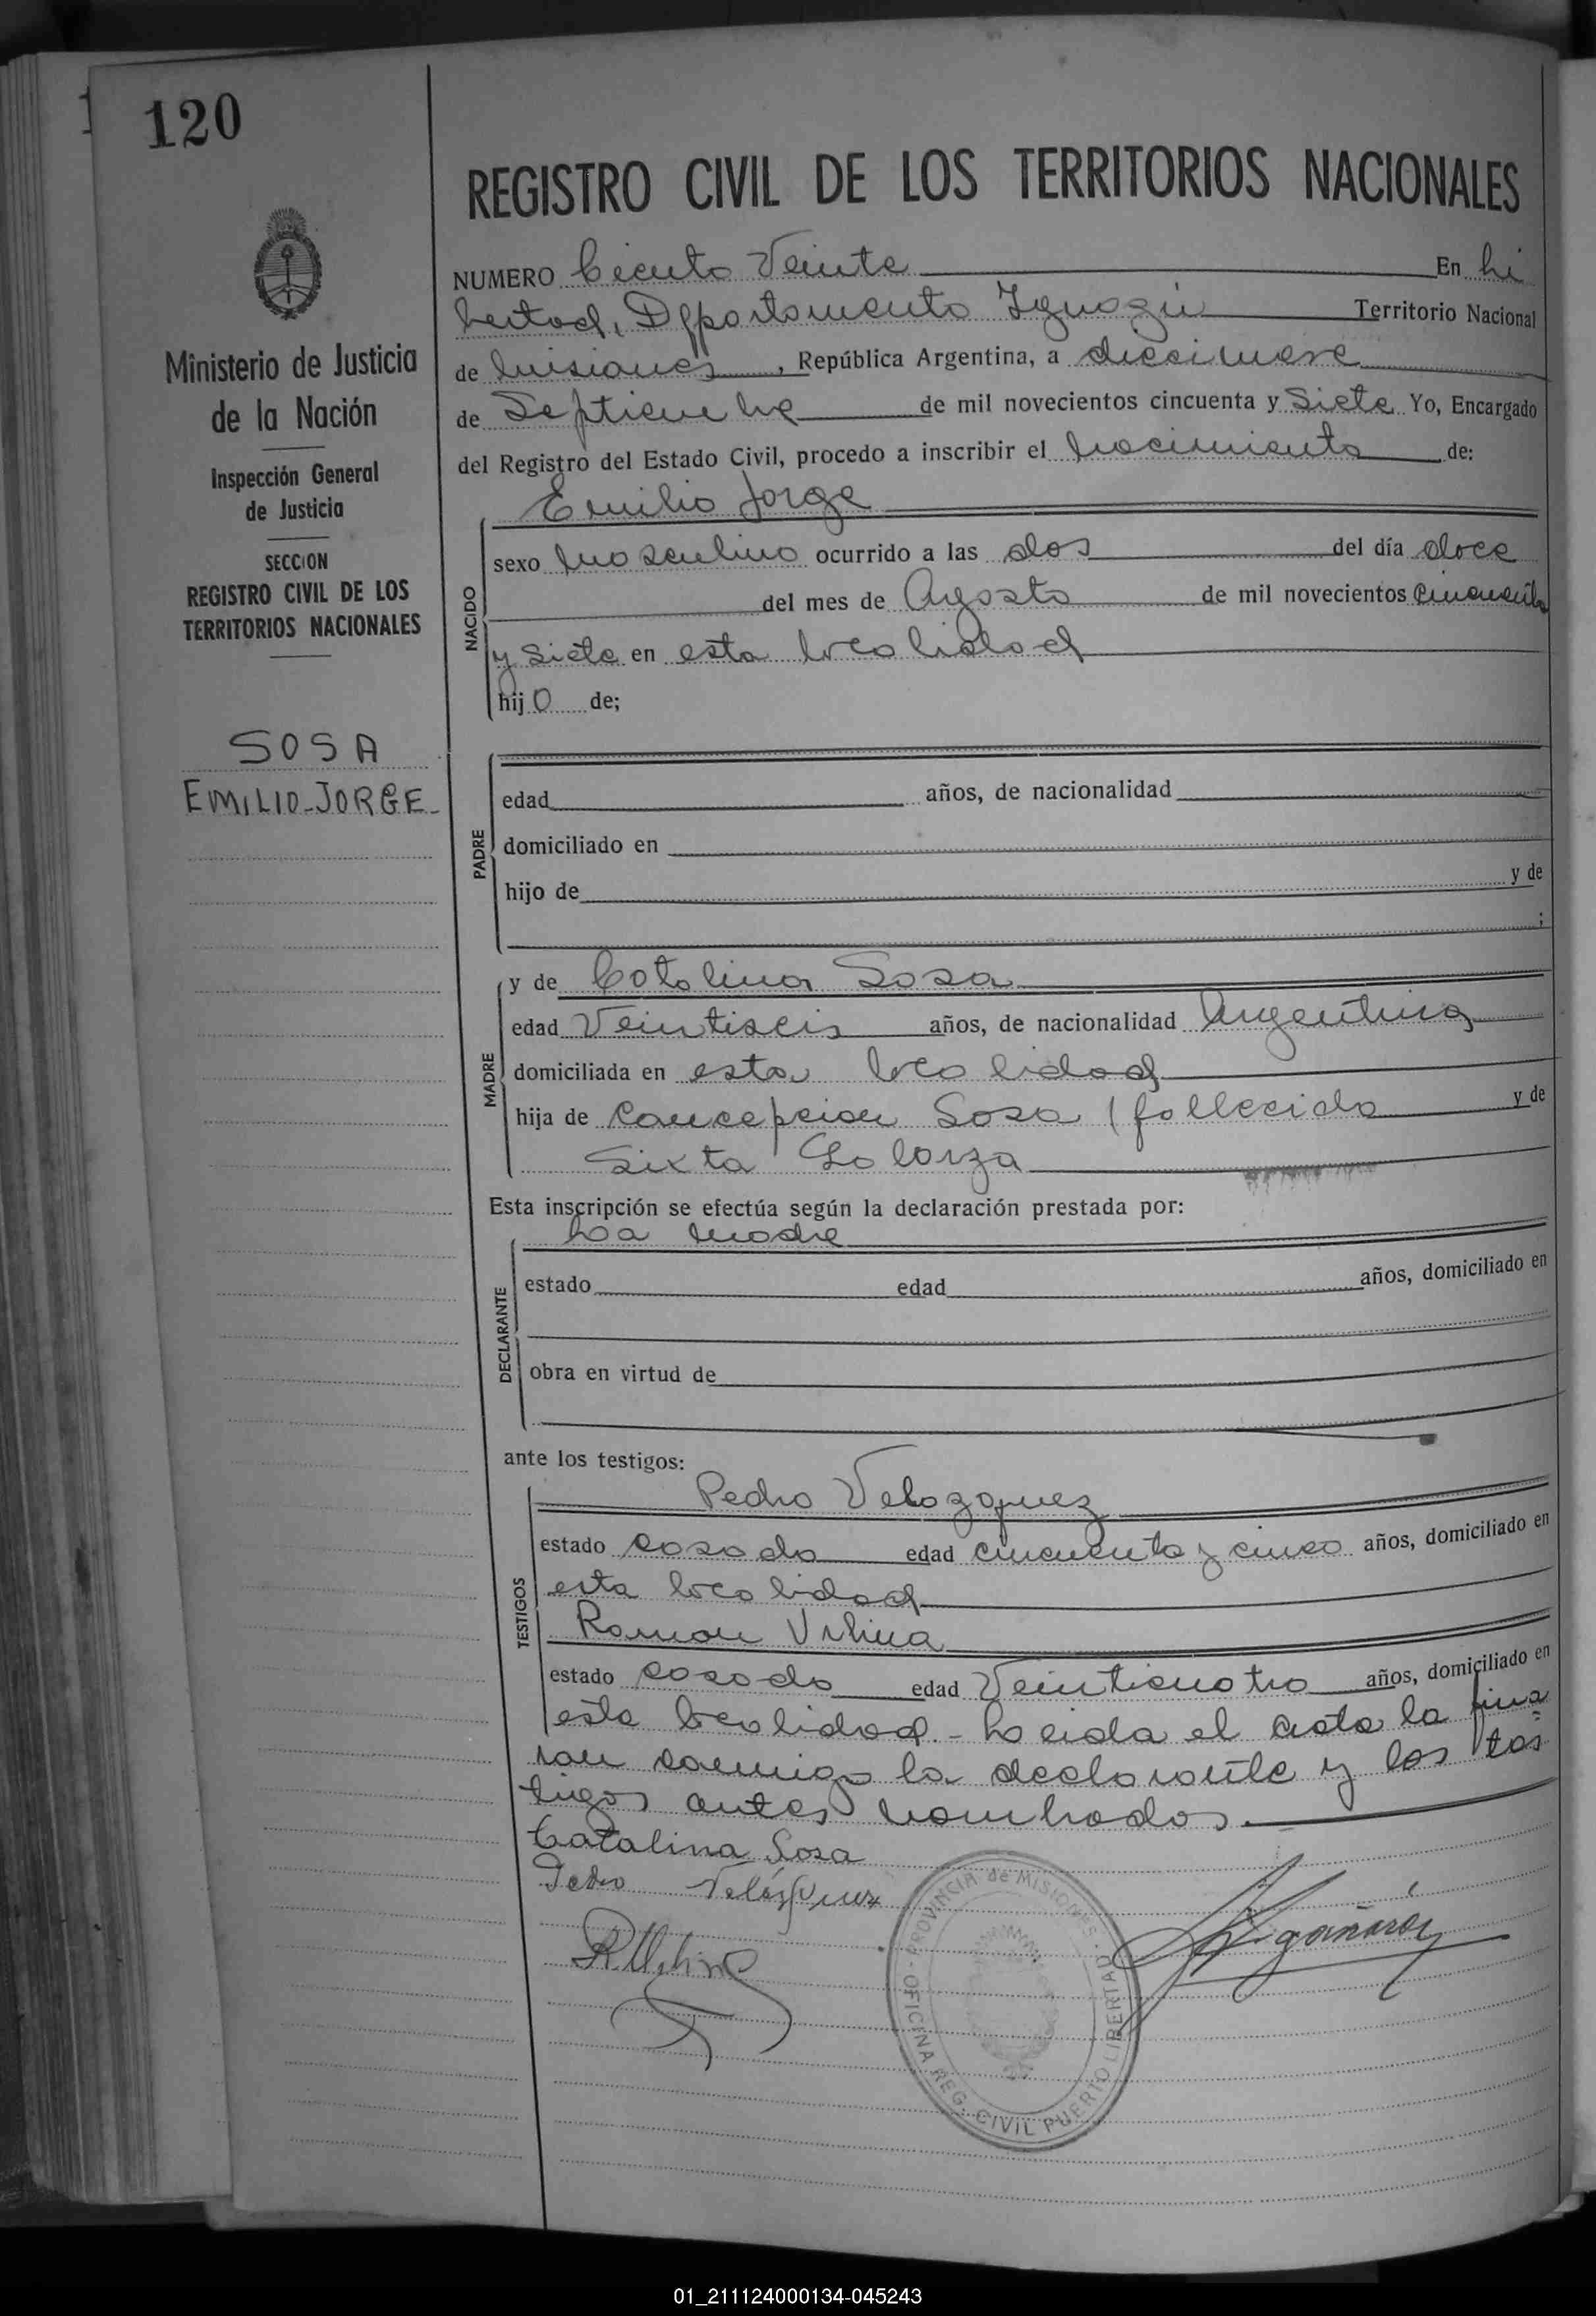 120
Ministerio de Justicia
de la Nación
Inspección General
de Justicia
SECCION
REGISTRO CIVIL DE LOS
TERRITORIOS NACIONALES
SOSA
EMILIO-JORGE-
REGISTRO CIVIL DE LOS TERRITORIOS NACIONALES
NUMERO Ciento Veinte En Li
bertad, Departamento Iguazú Territorio Nacional
de Misiones, República Argentina, a diecinueve
de Septiembre de mil novecientos cincuenta y Siete Yo, Encargado
del Registro del Estado Civil, procedo a inscribir el nacimiento de:
Emilio Jorge
NACIDO
sexo masculino ocurrido a las dos del día doce
del mes de Agosto de mil novecientos cincuenta
y Siete en esta localidad
hijo de;
PADRE
edad años, de nacionalidad
domiciliado en
hijo de y de
;
MADRE
y de Catalina Sosa
edad Veintiseis años, de nacionalidad Argentina
domiciliada en esta localidad
hija de Concepcion Sosa (fallecido y de
Sixta Galarza
Esta inscripción se efectúa según la declaración prestada por:
La madre
DECLARANTE
estado edad años, domiciliado en
obra en virtud de
ante los testigos:
TESTIGOS
Pedro Velazquez
estado casado edad cincuenta y cinco años, domiciliado en
esta localidad
Ramon Urbina
estado casado edad Veinticuatro años, domiciliado en
esta localidad.- Leida el acta la firma
ran conmigo la declarante y los tes
tigos antes nombrados.
Catalina Sosa
Pedro Velásquez
R Urbina
OFICINA REG. CIVIL PUERTO LIBERTAD - PROVINCIA de MISIONES
01_211124000134-045243